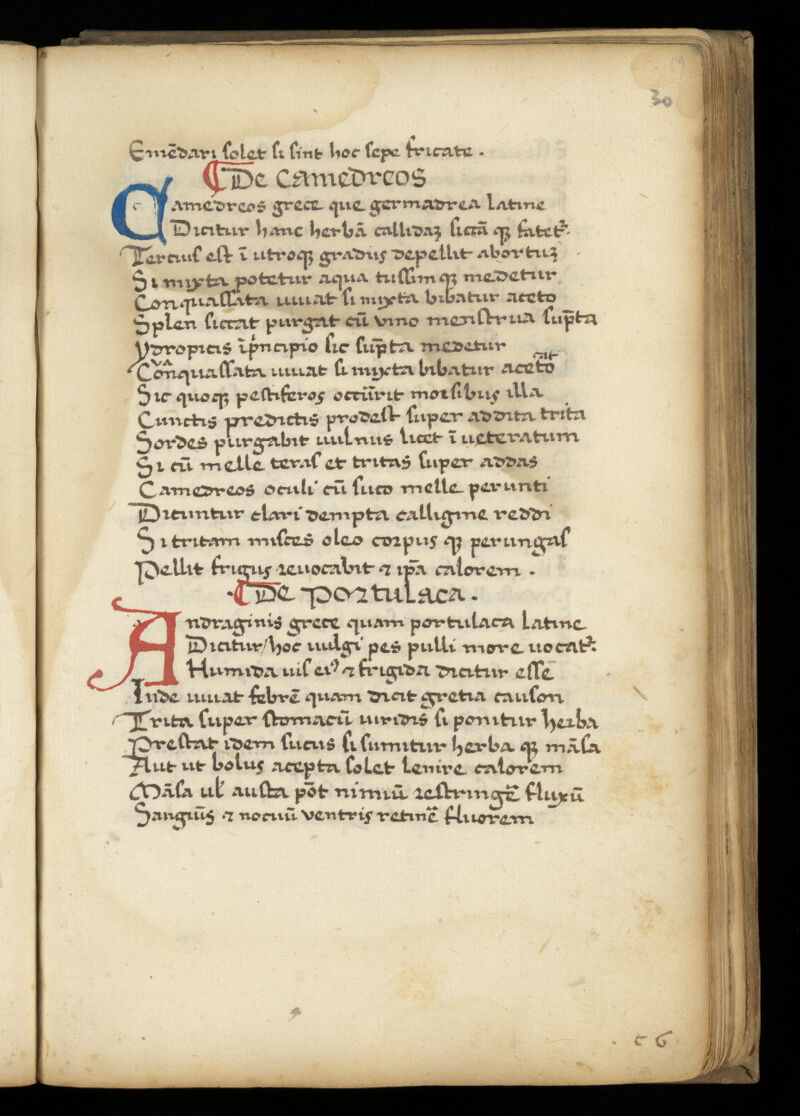 30
Emēdari solet si sint hoc sepe fricate .
De Camedreos
Camedreos grece que germadrea latine
Dicitur hanc herbā callidaꝫ siccā qꝫ fatet᷑.
Tercius est ī utroqꝫ gradus depellit abortuꝫ
Si mixta potetur aqua tussimqꝫ medetur
Conquassata iuuat si mixta bibatur aceto
Splen siccat purgat cū vino menstrua sūpta
Ydropicis ī pͥncipio sic sūpta medetur
Conquassata iuuat si mixta bibatur aceto
Sic quoqꝫ pestiferos occūrit morsibus illa
Cunctis predictis prodest super addita trita
Sordes purgabit uulnus licet ī ueteratum
Si cū melle teras et tritas super addas
Camedreos oculi cū suco melle perunti
Dicuntur clari dempta calligine reddi
Si tritam misces oleo corpus qꝫ perungas
Pellit frigus reuocabit ⁊ ip̄a calorem .
De portulaca .
Andraginis grece quam portulaca latine
Dicitur/hoc uulgi pes pulli more uocat᷑:
Humida uis eiꝰ ⁊ frigida dicitur esse
Inde iuuat febrē quam dicit gretia causon
Trita super stomacū uiridis si ponitur herba
Prestat idem sucus si sumitur herba qꝫ māsa
Aut ut bolus acepta solet lenire calorem
Māsa ul̄ austa pōt nimiū restringē fluxū
Sanguīs ⁊ nocuū ventris retinē fluorem
c 6